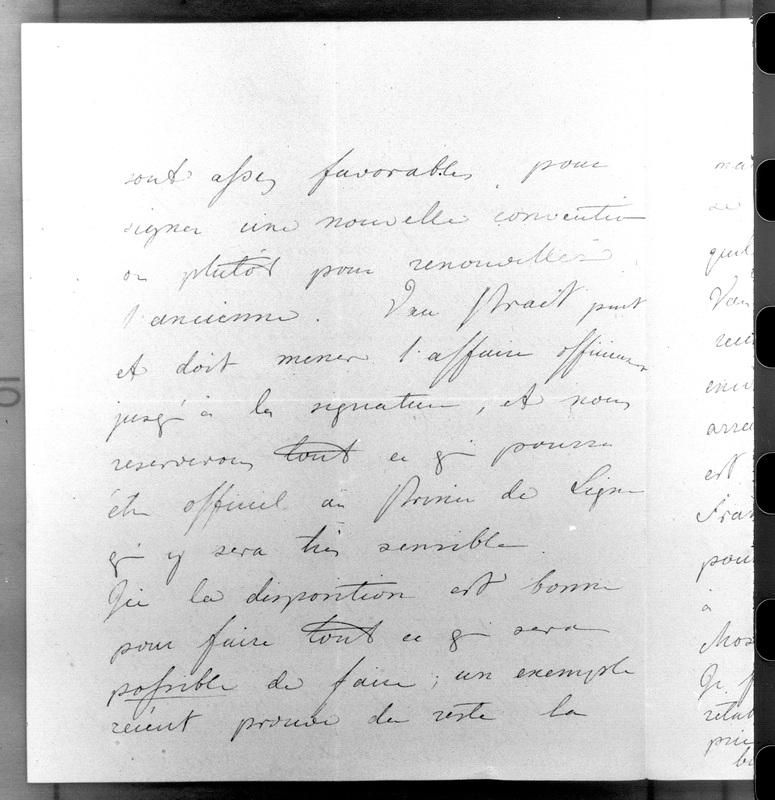 sont assez favorables, pour
signer une nouvelle convention
ou plutôt pour renouveller
l'ancienne. Van Praet peut
et doit mener l'affaire
jusqu'à la signature, et nous
reserverons tout ce qi pourra
être officiel au Prince de Ligne
qi y sera très sensible.
Ici la disposition est bonne
pour faire tout ce qi sera
possible de faire; un exemple
récent prouve du reste la